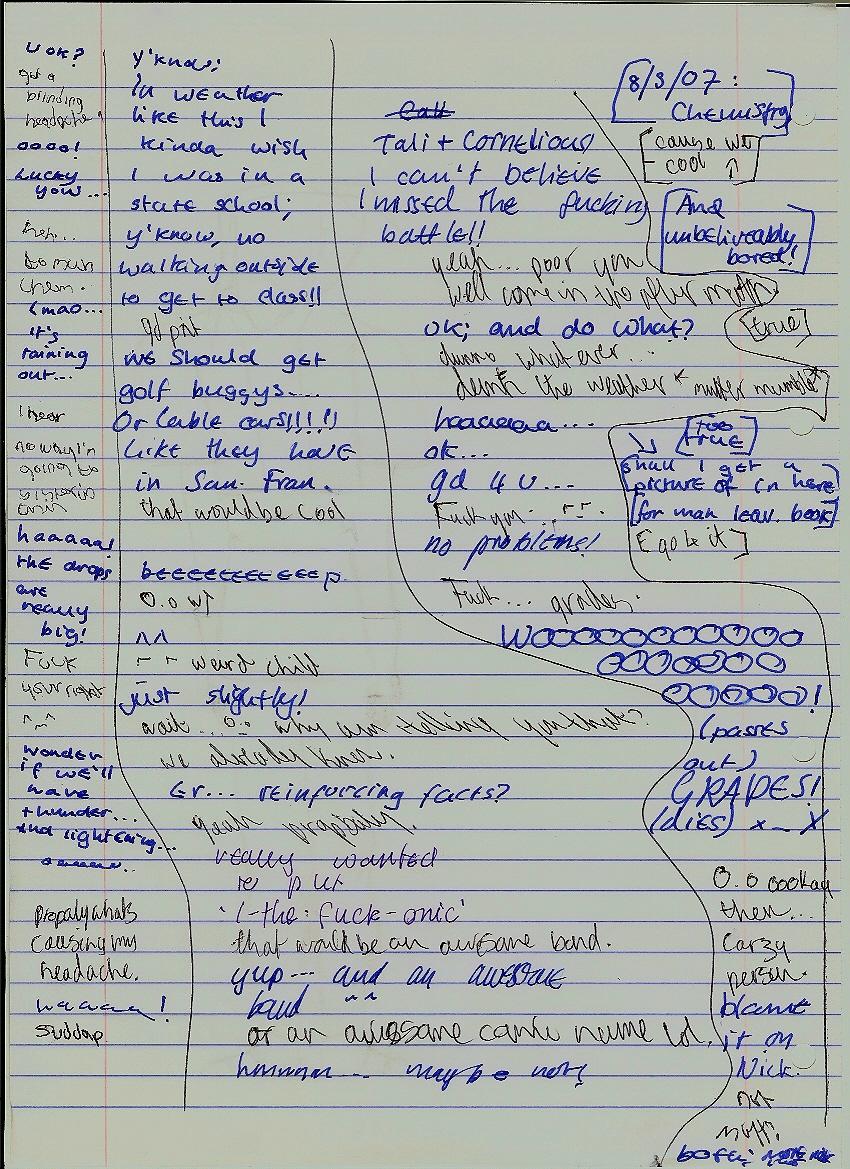 8/3/07:
Chemistry
[cause we
cool ↑]
[And
unbeliveably
bored!]
Call
Tali + Cornelious
I can't believe
I missed the fucking
battle!!
yeah... poor you
Well come in the after
ok; and do what?
[true]
dunno what ever...
the weather *mutter mumble*
haaaaaa...
ok...
gd 4 u...
Fuck you
no problems!
Fuck... grades.
Woooooooooooo
ooooooo
ooooo!
(passes
out)
GRAPES!
(dies) x_x
O.o oookay
then...
carzy
person.
blame
it on
Nick.
not
[too
true]
shall I get a
picture of in here
for man leav. book
y'know;
In weather
like this I
kinda wish
I was in a
state school;
y'know, no
walking outside
to get to class!!
gd pnt
we should get
golf buggys....
Or Cable cars!!!!!
Like they have
in San. Fran.
that would be cool
beeeeeeeeeep
O.o wt
^^
weird child
just slightly!
wait... why am I telling you that?
we already knew.
Er... reinforcing facts?
yeah propably.
really wanted
to put
'l-the:fuck-onic'
that would be an awesome band.
yup... and an awesome
band ^^
or an awesome comic name lol.
hmmmm... maybe not!
u ok?
got a
blinding
headache
oooo!
Lucky
you...
heh...
chem.
lmao...
it's
raining
out...
I hear
no way I'm
going to
haaaaa!
the drops
are
really
big!
Fuck
your right
^_^
wonder
if we'll
have
thunder...
And lightening...
propaly whats
causing my
headache.
waaaaa!